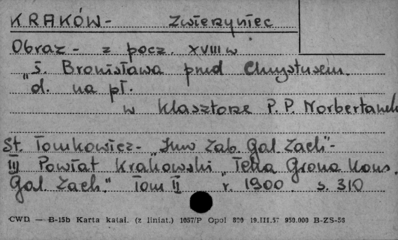 KRAKÓW- Zwierzyniec
Obraz - z pocz. XVIII w
"Ś. Bronisława przed Chrystusem.
d. na pł.
w Klasztorze P.P. Norbertanek
St. Tomkowicz- "Inw Zab. Gal Zach"-
III Powiat Krakowski "Teka Grona Kons.
Gal. Zach." Tom II r. 1900 s. 310
CWD — B-15b Karta katal. (z liniat.) 1037/P Opol 809 19.III.57 950.000 B-ZS-50